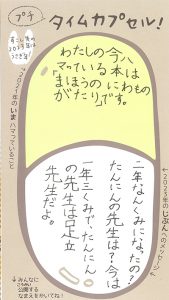 プチ
タイムカプセル！
2023年は
うさぎ年！
わたしの今
マっている本は
「まほうのにわもの
がたり」です。
←2021年のいまハマっていること
二年なんくみになったの？
たんにんの先生は？今は
一年三くみで、たんにん
の先生は足立
先生だよ。
←2023年のじぶんへのメッセージ
↓みんなに
公開する
なまえをかいてね！